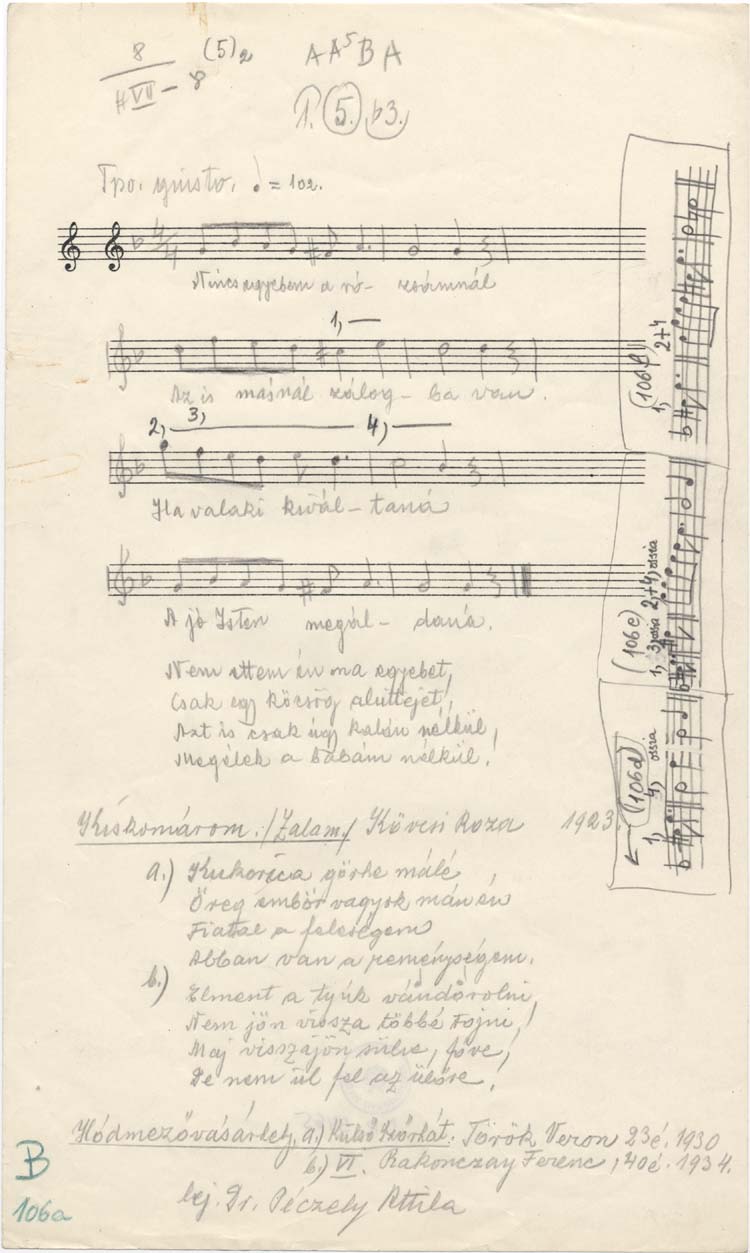 8
(5)₂
AA⁵BA
#VII – 8
1. 5. b3.
Tpo. giusto. ♩ = 102.
4/4
Nincs egyebem a ró- zsámnál
1, —
Az is másnál zálog- ba van.
2, 3, 4,
Ha valaki kivál- taná
A jó Isten megál- daná.
Nem ettem én ma egyebet,
Csak egy köcsög aluttejet,
Azt is csak úgy kalán nélkül,
Megélek a babám nélkül.
Kiskomárom. /Zalam./ Kövesi Roza 1923.
a.) Kukorica görhe málé
Öreg embör vagyok mán én
Fiatal a feleségem
Abban van a reménységem.
b.) Elment a tyúk vándórolni,
Nem jön vissza többé tojni,
Maj visszajön sülve, főve,
De nem ül fel az ülőre.
Hódmezővásárhely, a.) Külső Török Veron 23é. 1930
b.) VI. Rakonczay Ferenc, 40é. 1934.
lej. Dr. Péczely Attila
B
106a
(106f)
1, 2+4
(106e)
1, 3 ossia 2,+4, ossia
(106d)
1, 4, ossia